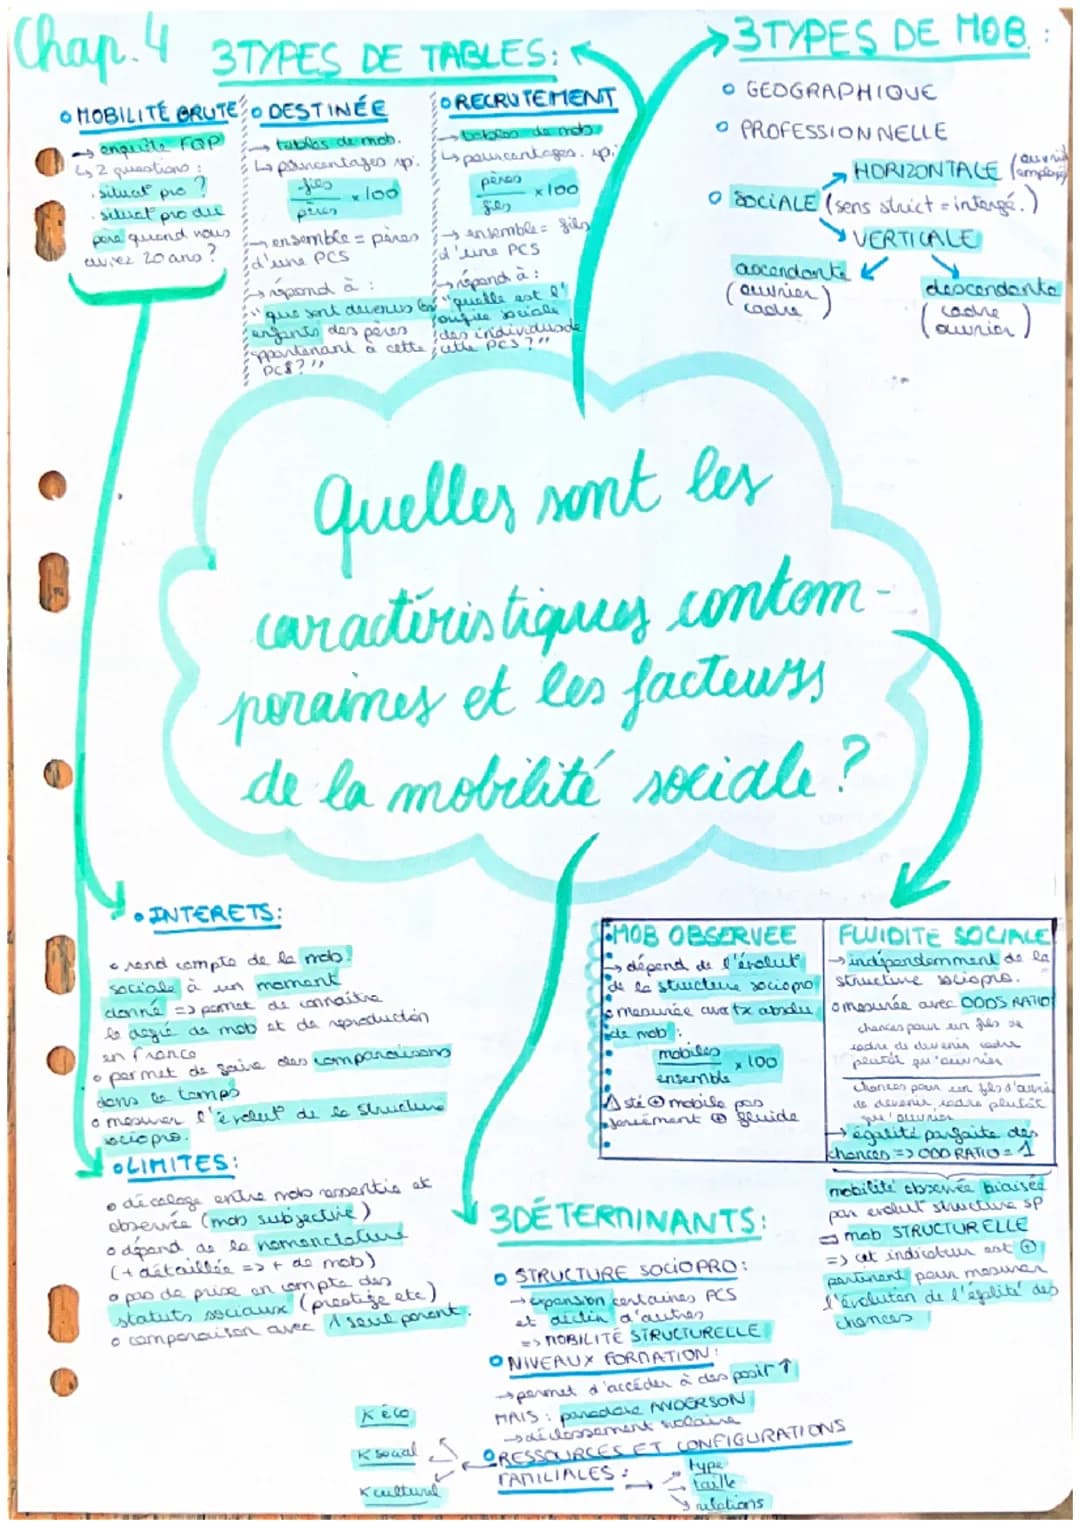 Chap. 4
3 TYPES DE TABLES:
• MOBILITÉ BRUTE
→ enquête FQP
↳ 2 questions :
. situat° pro ?
. situat° pro du
père quand vous
aviez 20 ans ?
• DESTINÉE
→ tables de mob.
↳ pourcentages
fils
pères
x 100
→ ensemble = pères
d'une PCS
→ répond à :
"que sont devenus les
enfants des pères
appartenant à cette
PCS ?"
• RECRUTEMENT
→ tables de mob.
↳ pourcentages.
pères
fils
x 100
→ ensemble = fils
d'une PCS
→ répond à :
"quelle est l'
origine sociale
des individus de
cette PCS ?"
3 TYPES DE MOB. :
• GEOGRAPHIQUE
• PROFESSIONNELLE
→ HORIZONTALE
• SOCIALE (sens strict = intergé.)
→ VERTICALE
ascendante
(ouvrier
cadre)
descendante
(cadre
ouvrier)
Quelles sont les
caractéristiques contem-
poraines et les facteurs
de la mobilité sociale ?
• INTERETS:
• rend compte de la mob.
sociale à un moment
donné => permet de connaître
le degré de mob et de reproduction
en France
• permet de faire des comparaisons
dans le temps
• mesurer l'évolut° de la structure
sociopro.
• LIMITES:
• décalage entre mob ressentie et
observée (mob subjective)
• dépend de la nomenclature
(+ détaillée => + de mob)
• pas de prise en compte des
statuts sociaux (prestige etc)
• comparaison avec 1 seul parent.
MOB OBSERVÉE
→ dépend de l'évolut°
de la structure sociopro
• mesurée avec tx absolu
de mob :
mobiles
ensemble
x 100
⚠ sté ⊕ mobile pas
forcément ⊕ fluide
FLUIDITÉ SOCIALE
→ indépendamment de la
structure sociopro.
• mesurée avec ODDS RATIO
chances pour un fils de
cadre de devenir cadre
plutôt qu'ouvrier
chances pour un fils d'ouvrier
de devenir cadre plutôt
qu'ouvrier
→ égalité parfaite des
chances => ODD RATIO = 1
mobilité observée biaisée
par évolut° structure SP
⇒ mob STRUCTURELLE
=> cet indicateur est ⊕
pertinent pour mesurer
l'évolution de l'égalité des
chances
3 DÉTERMINANTS:
• STRUCTURE SOCIOPRO:
→ expansion certaines PCS
et déclin d'autres
=> MOBILITÉ STRUCTURELLE
• NIVEAUX FORMATION:
→ permet d'accéder à des posit° ↑
MAIS : paradoxe ANDERSON
→ déclassement scolaire
• RESSOURCES ET CONFIGURATIONS
FAMILIALES :
K éco
K social
K culturel
type
taille
relations